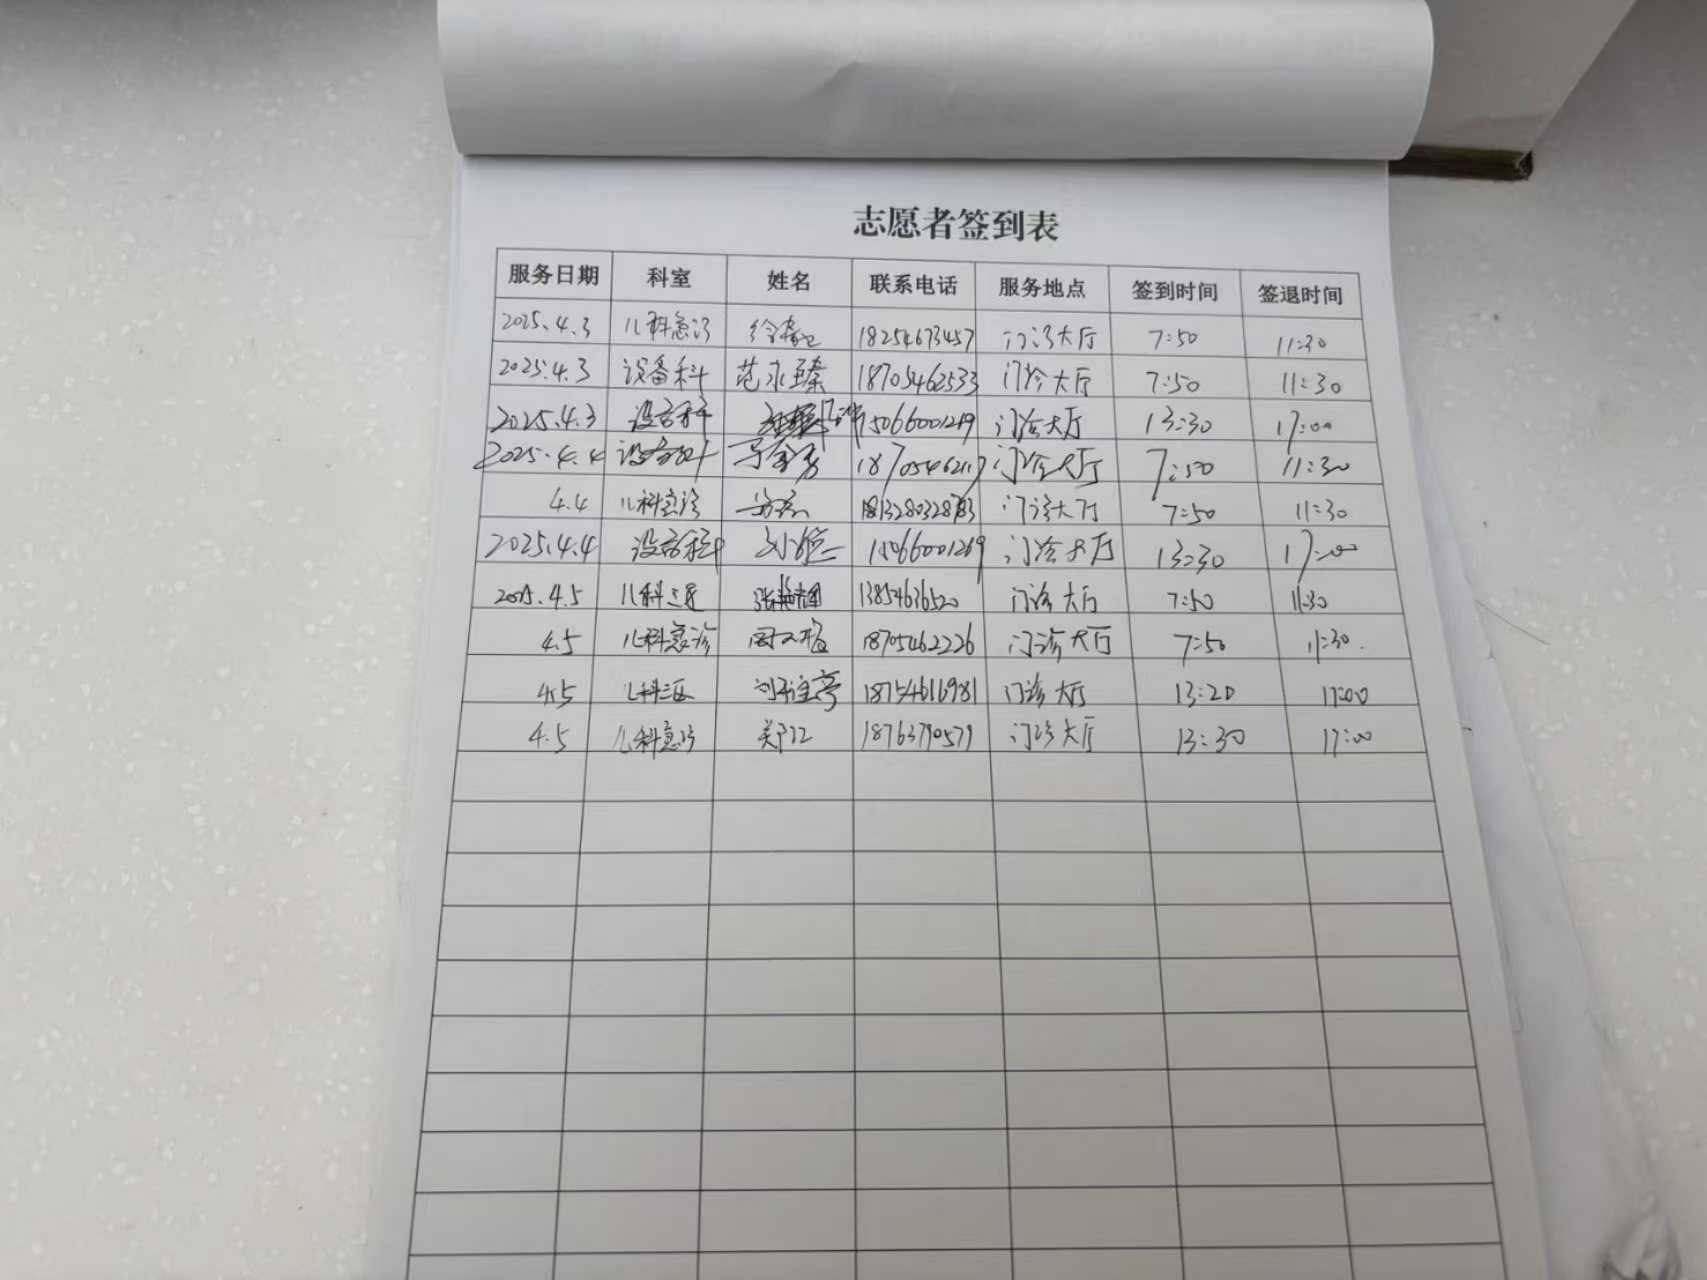 志愿者签到表
服务日期 科室 姓名 联系电话 服务地点 签到时间 签退时间
2025.4.3 儿科急诊 18254673457 门诊大厅 7:50 11:30
2025.4.3 设备科 范永臻 18705462533 门诊大厅 7:50 11:30
2025.4.3 设备科 15066001269 门诊大厅 13:30 17:00
2025.4.4 设备科 门诊大厅 7:50 11:30
4.4 儿科急诊 门诊大厅 7:50 11:30
2025.4.4 设备科 15066001269 门诊大厅 13:30 17:00
2025.4.5 儿科三区 13854636520 门诊大厅 7:50 11:30
4.5 儿科急诊 18705462226 门诊大厅 7:50 11:30.
4.5 儿科三区 18754616981 门诊大厅 13:20 17:00
4.5 儿科急诊 18763790579 门诊大厅 13:30 17:00